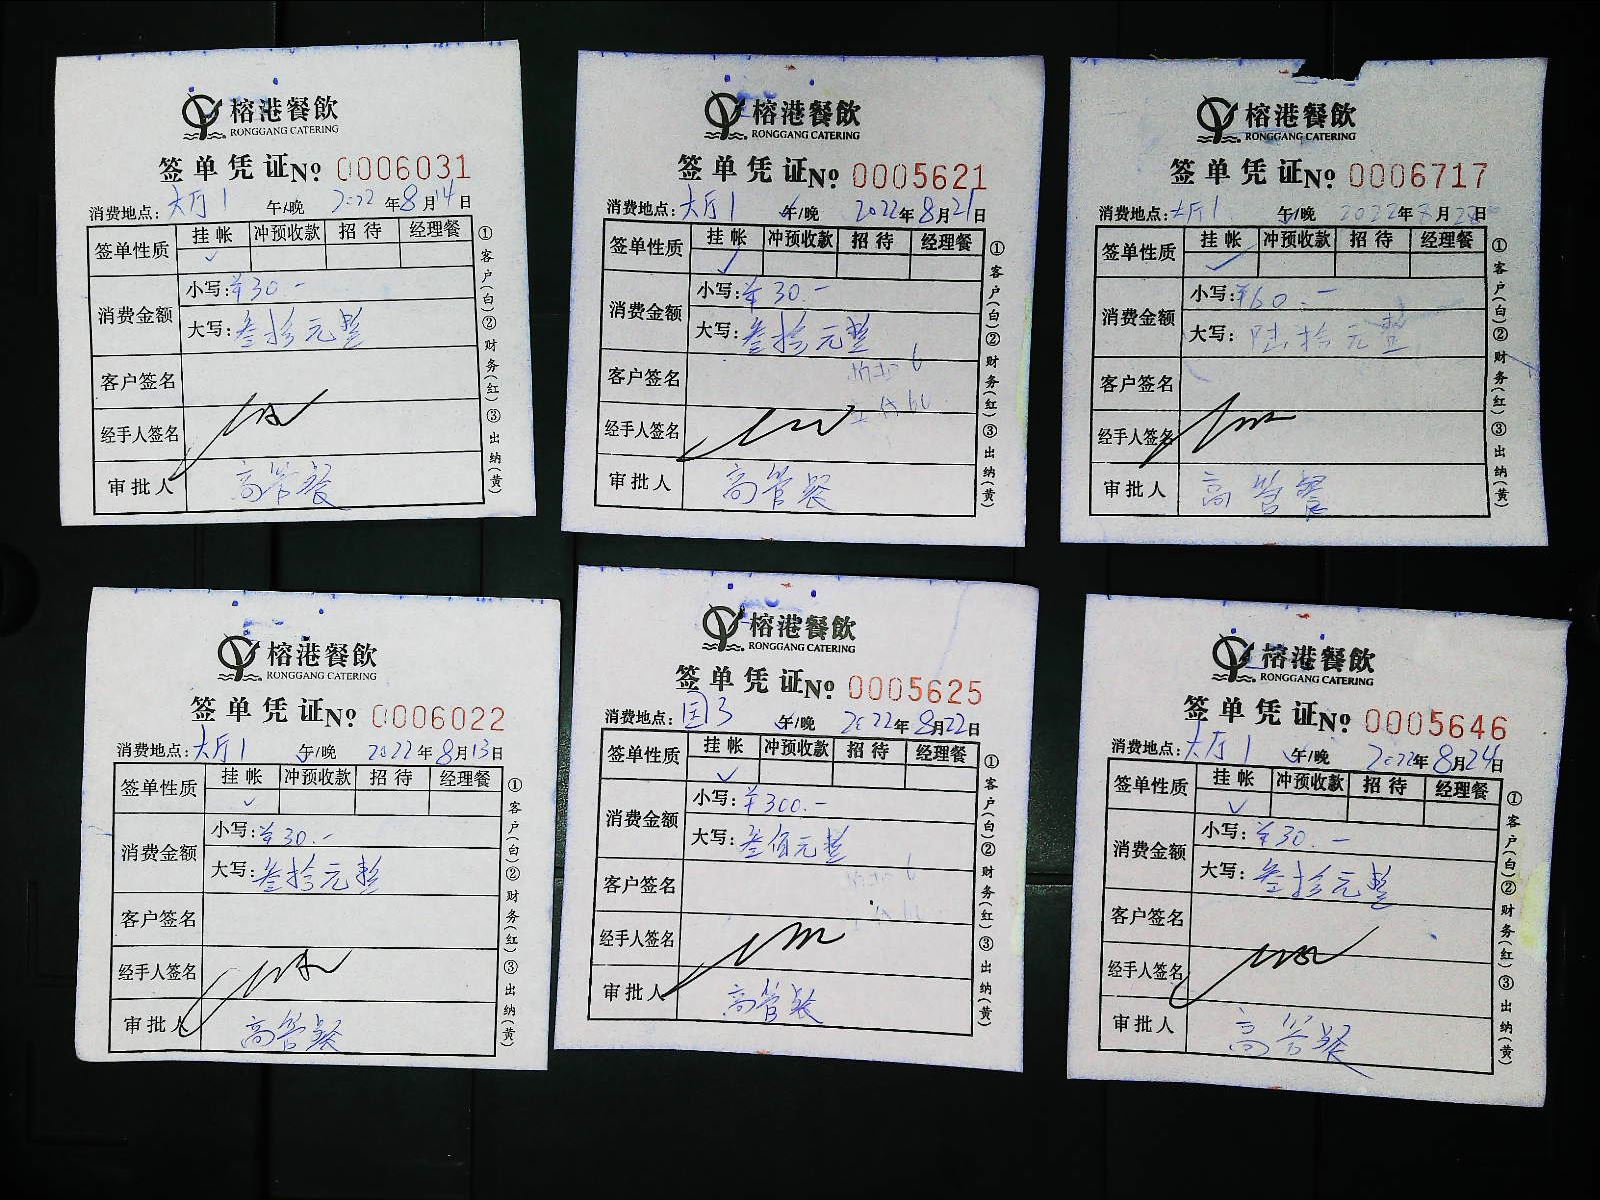 榕港餐飲
RONGGANG CATERING
签单凭证№ 0006031
消费地点: 大厅1 午/晚 2022年8月14日
签单性质 挂帐 冲预收款 招待 经理餐
✓
消费金额 小写: ¥30.-
大写: 叁拾元整
客户签名
经手人签名
审批人 高管餐
①客户(白)②财务(红)③出纳(黄)
榕港餐飲
RONGGANG CATERING
签单凭证№ 0005621
消费地点: 大厅1 午/晚 2022年8月21日
签单性质 挂帐 冲预收款 招待 经理餐
✓
消费金额 小写: ¥30.-
大写: 叁拾元整
客户签名
经手人签名
审批人 高管餐
①客户(白)②财务(红)③出纳(黄)
榕港餐飲
RONGGANG CATERING
签单凭证№ 0006717
消费地点: 大厅1 午/晚 2022年 月 日
签单性质 挂帐 冲预收款 招待 经理餐
✓
消费金额 小写: ¥60.-
大写: 陆拾元整
客户签名
经手人签名
审批人 高管餐
①客户(白)②财务(红)③出纳(黄)
榕港餐飲
RONGGANG CATERING
签单凭证№ 0006022
消费地点: 大厅1 午/晚 2022年8月13日
签单性质 挂帐 冲预收款 招待 经理餐
✓
消费金额 小写: ¥30.-
大写: 叁拾元整
客户签名
经手人签名
审批人 高管餐
①客户(白)②财务(红)③出纳(黄)
榕港餐飲
RONGGANG CATERING
签单凭证№ 0005625
消费地点: 午/晚 2022年8月22日
签单性质 挂帐 冲预收款 招待 经理餐
✓
消费金额 小写: ¥300.-
大写: 叁佰元整
客户签名
经手人签名
审批人 高管餐
①客户(白)②财务(红)③出纳(黄)
榕港餐飲
RONGGANG CATERING
签单凭证№ 0005646
消费地点: 大厅1 午/晚 2022年8月24日
签单性质 挂帐 冲预收款 招待 经理餐
✓
消费金额 小写: ¥30.-
大写: 叁拾元整
客户签名
经手人签名
审批人 高管餐
①客户(白)②财务(红)③出纳(黄)